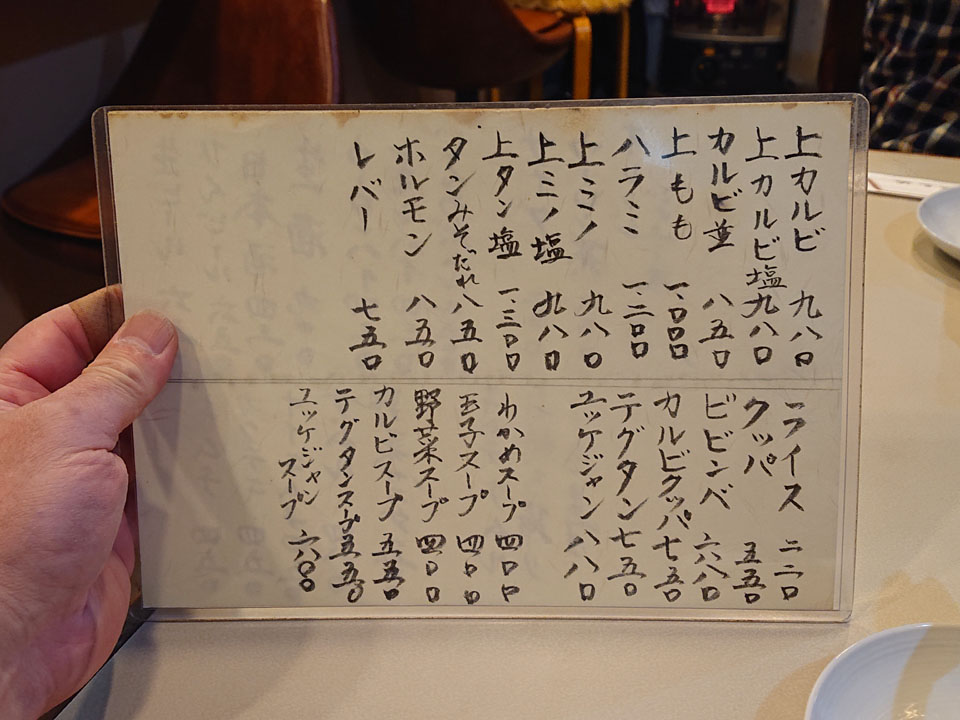 上カルビ 九八〇
上カルビ塩 九八〇
カルビ並 八五〇
上もも 一、〇〇〇
ハラミ 一、二〇〇
上ミノ 九八〇
上ミノ塩 九八〇
上タン塩 一、三〇〇
タンみそだれ 八五〇
ホルモン 八五〇
レバー 七五〇
ライス 二二〇
クッパ 五五〇
ビビンバ 六八〇
カルビクッパ 七五〇
テグタン 七五〇
ユッケジャン 八八〇
わかめスープ 四〇〇
玉子スープ 四〇〇
野菜スープ 四〇〇
カルビスープ 五五〇
テグタンスープ 五五〇
ユッケジャンスープ 六八〇